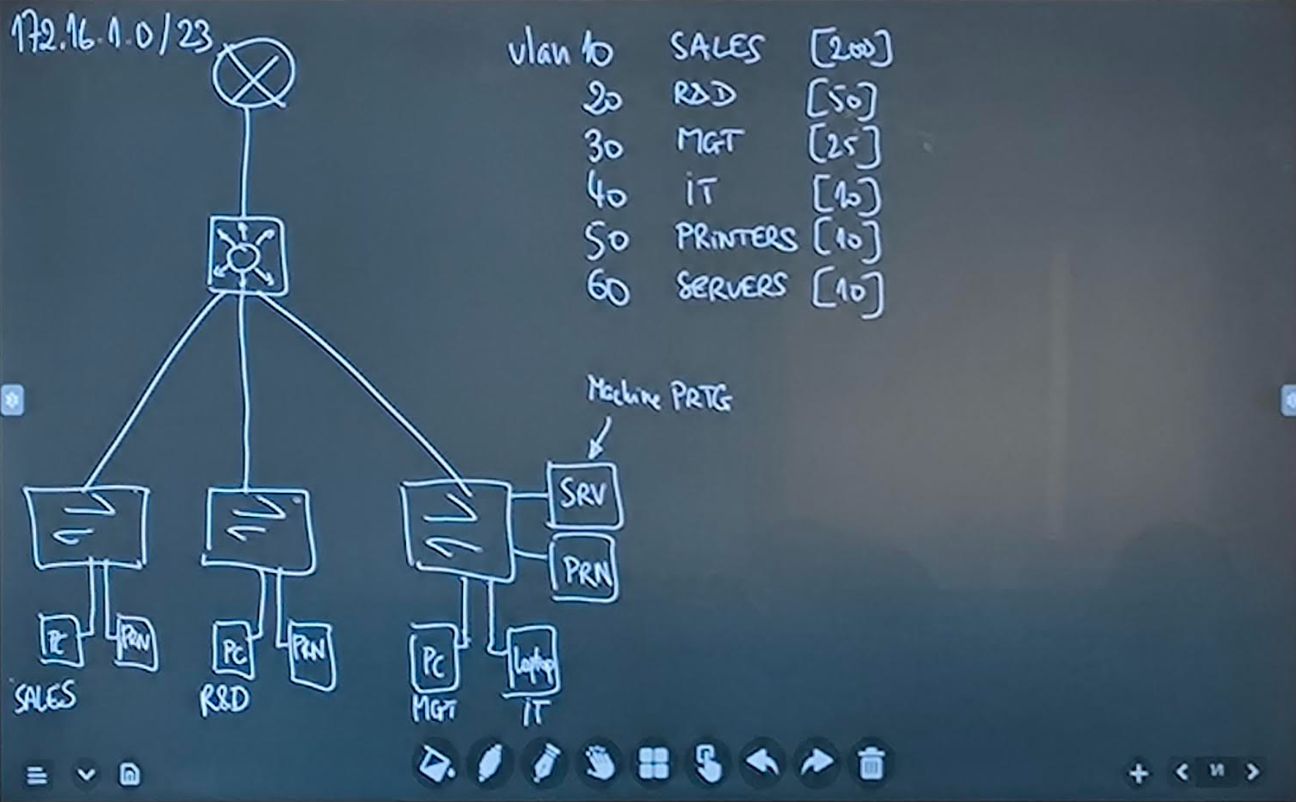 172.16.1.0/23
vlan 10 SALES [200]
20 R&D [50]
30 MGT [25]
40 iT [10]
50 PRiNTERS [10]
60 SERVERS [10]
Machine PRTG
SRV
PRN
PC PRN
PC PRN
PC Laptop
SALES
R&D
MGT
iT
1/1